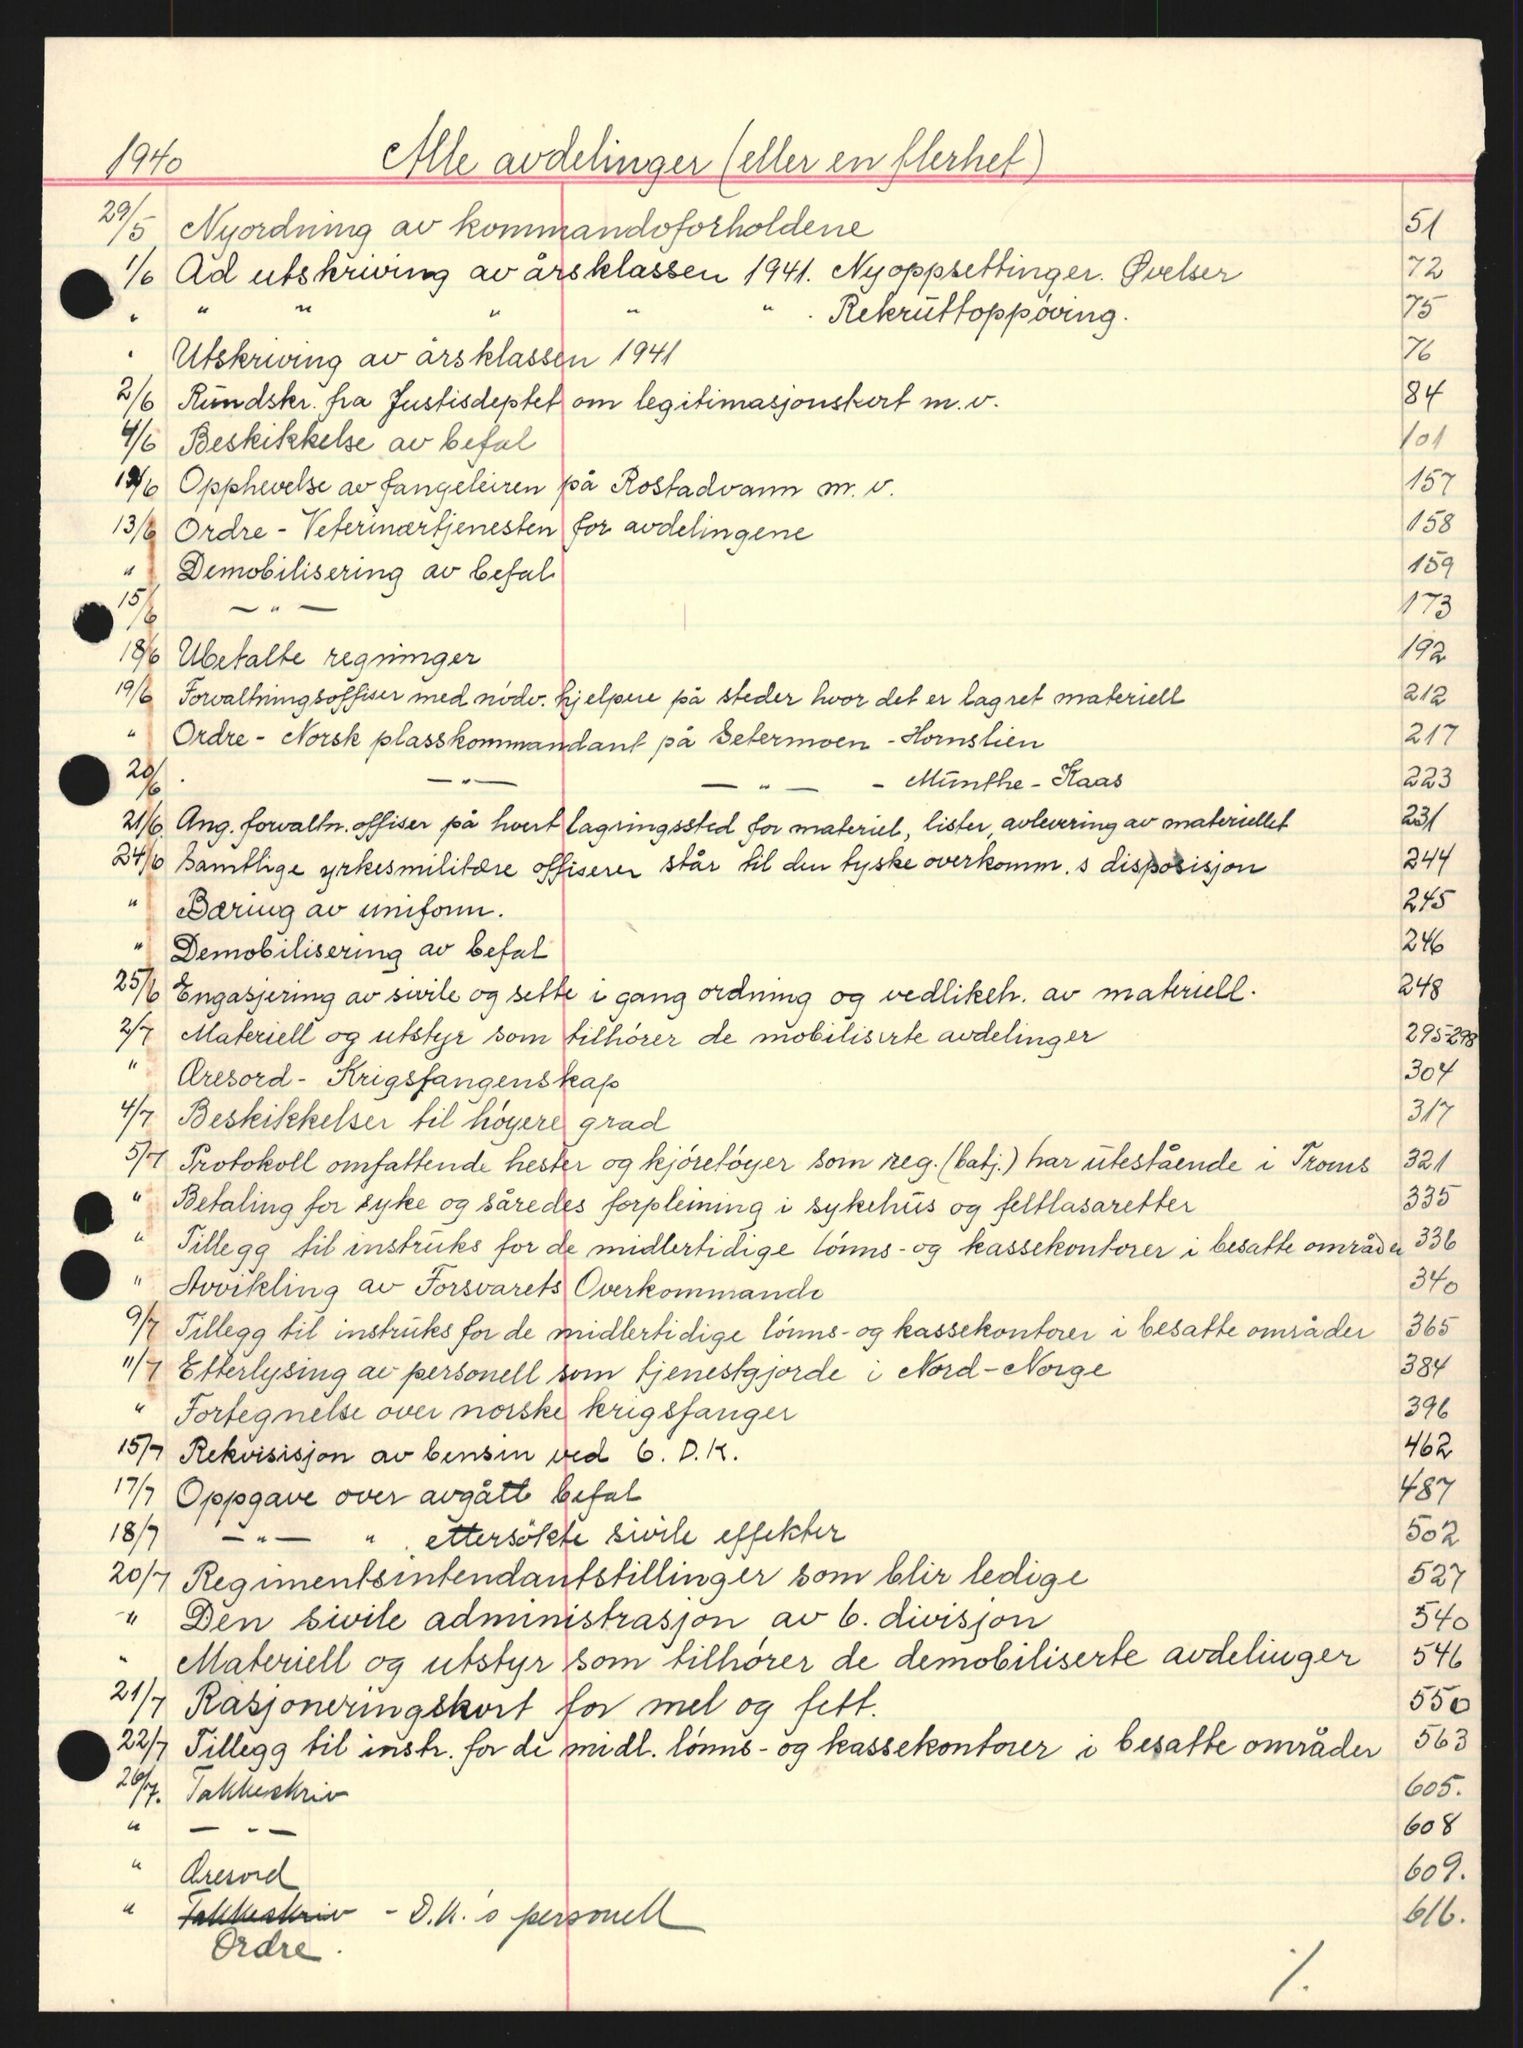 1940 Alle avdelinger (eller en flerhet)
29/5 Nyordning av kommandoforholdene 51
1/6 Ad utskriving av årsklassen 1941. Nyoppsettinger. Øvelser 72
" " " " " " . Rekruttoppøving. 75
" Utskriving av årsklassen 1941 76
2/6 Rundskr. fra Justisdeptet om legitimasjonskort m.v. 84
4/6 Beskikkelse av befal 101
/6 Opphevelse av fangeleiren på Rostadvann m.v. 157
13/6 Ordre - Veterinærtjenesten for avdelingene 158
" Demobilisering av befal 159
15/6 — " — 173
18/6 Ubetalte regninger 192
19/6 Forvaltningsoffiser med nødv. hjelpere på steder hvor det er lagret materiell 212
" Ordre - Norsk plasskommandant på Setermoen - Hornslien 217
20/6 . — " — — " — - Munthe-Kaas 223
21/6. Ang. forvaltn.offiser på hvert lagringssted for materiel, lister, avlevering av materiellet 231
24/6 Samtlige yrkesmilitære offiserer står til den tyske overkomm.s disposisjon 244
" Bæring av uniform. 245
" Demobilisering av befal 246
25/6 Engasjering av sivile og sette i gang ordning og vedlikeh. av materiell. 248
2/7 Materiell og utstyr som tilhører de mobiliserte avdelinger 295-298
" Æresord - Krigsfangenskap 304
4/7 Beskikkelser til høyere grad 317
5/7 Protokoll omfattende hester og kjøretøyer som reg. (batj.) har utestående i Troms 321
" Betaling for syke og såredes forpleining i sykehus og feltlasaretter 335
" Tillegg til instruks for de midlertidige lønns- og kassekontorer i besatte områder 336
" Avvikling av Forsvarets Overkommando 340
9/7 Tillegg til instruks for de midlertidige lønns- og kassekontorer i besatte områder 365
11/7 Etterlysing av personell som tjenestgjorde i Nord-Norge 384
" Fortegnelse over norske krigsfanger 396
15/7 Rekvisisjon av bensin ved 6. D.K. 462
17/7 Oppgave over avgått befal 487
18/7 — " — " . ettersøkte sivile effekter 502
20/7 Regimentsintendantstillinger som blir ledige 527
" Den sivile administrasjon av 6. divisjon 540
" Materiell og utstyr som tilhører de demobiliserte avdelinger 546
21/7 Rasjoneringskort for mel og fett. 550
22/7 Tillegg til instr. for de midl. lønns- og kassekontorer i besatte områder 563
26/7. Takkeskriv 605.
" — " — 608
" Æresord 609.
" Takkeskriv - D.K.'s personell 616.
Ordre.
%.